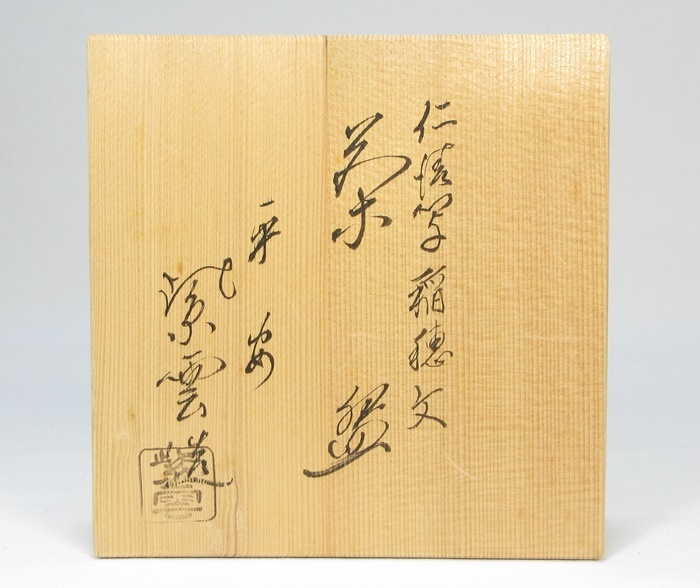 仁清写 稲穂文
茶碗
平安
紫雲造
紫雲